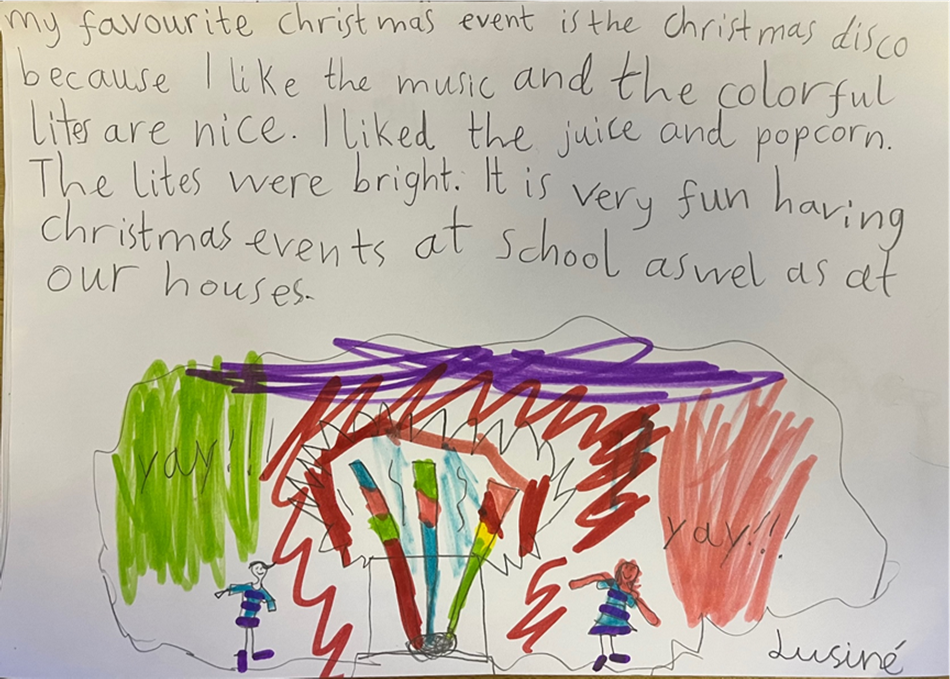 my favourite christmas event is the christmas disco
because I like the music and the colorful
lites are nice. I liked the juice and popcorn.
The lites were bright. It is very fun having
christmas events at school aswel as at
our houses.
yay!!
yay!!!
Lusiné